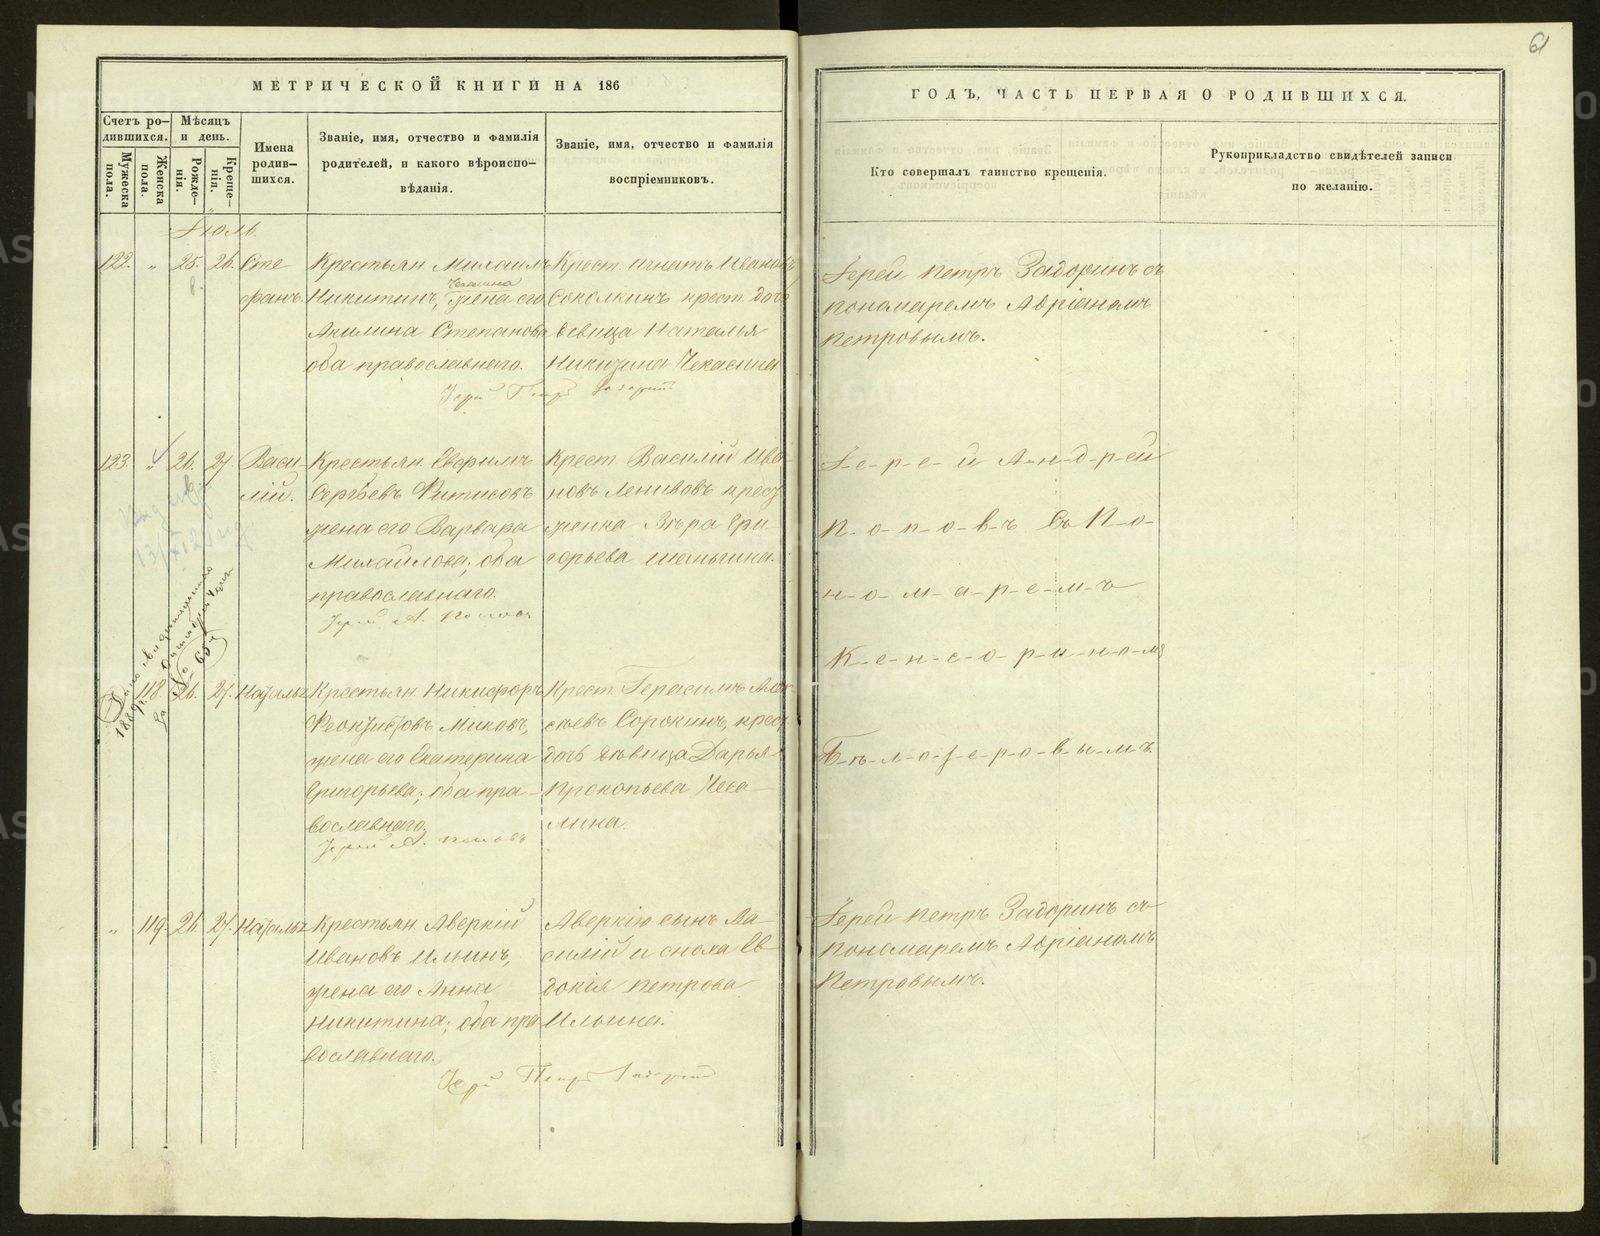 61
МЕТРИЧЕСКОЙ КНИГИ НА 186
ГОДЪ, ЧАСТЬ ПЕРВАЯ О РОДИВШИХСЯ.
Счетъ ро-
дившихся.
Мужеска
пола.
Женска
пола.
Мѣсяцъ
и день.
Рожде-
нія.
Креще-
нія.
Имена
родив-
шихся.
Званіе, имя, отчество и фамилія
родителей, и какого вѣроиспо-
вѣданія.
Званіе, имя, отчество и фамилія
воспріемниковъ.
Кто совершалъ таинство крещенія.
Рукоприкладство свидѣтелей записи
по желанію.
Іюль.
122. " 25. 26. Сте
фанъ.
Крестьян. Михаилъ
Никитинъ, жена его
Акилина Степанова
оба православнаго.
Крест. Игнатъ Ивановъ
Соколкинъ крест. дочь
девица Наталья
Іерей Петръ Задоринъ
Іерей Петръ Задоринъ съ
пономаремъ Авріаномъ
Петровымъ.
123. " 26. 27. Васи-
лій.
Крестьян. Евфимъ
Сергѣевъ
жена его Варвара
Михайлова; оба
православнаго.
Іерей А. Поповъ
Крест. Василій Ива-
новъ Ленивовъ крест.
женка Вѣра Гри-
горьева Шаньгина.
Іерей Андрей
Поповъ съ По-
номаремъ
Кенсориномъ
Бѣлозеровымъ
118. 26. 27. Наталья
Крестьян. Никифоръ
Феоктистовъ Миковъ,
жена его Екатерина
Григорьева; оба пра-
вославнаго.
Іерей А. Поповъ
Крест. Герасимъ Алек-
сѣевъ Сорокинъ, крест.
дочь дѣвица Дарья
Прокопьева
" 119. 26. 27. Наталья
Крестьян. Аверкій
Ивановъ Ильинъ,
жена его Анна
Никитина; оба пра
вославнаго.
Іерей Петръ Задоринъ
Аверкію сынъ Ва-
силій и сноха Ев-
докія Петрова
Ильина.
Іерей Петръ Задоринъ съ
Пономаремъ Авріаномъ
Петровымъ.
METRIKI.GASO-URAL.RU